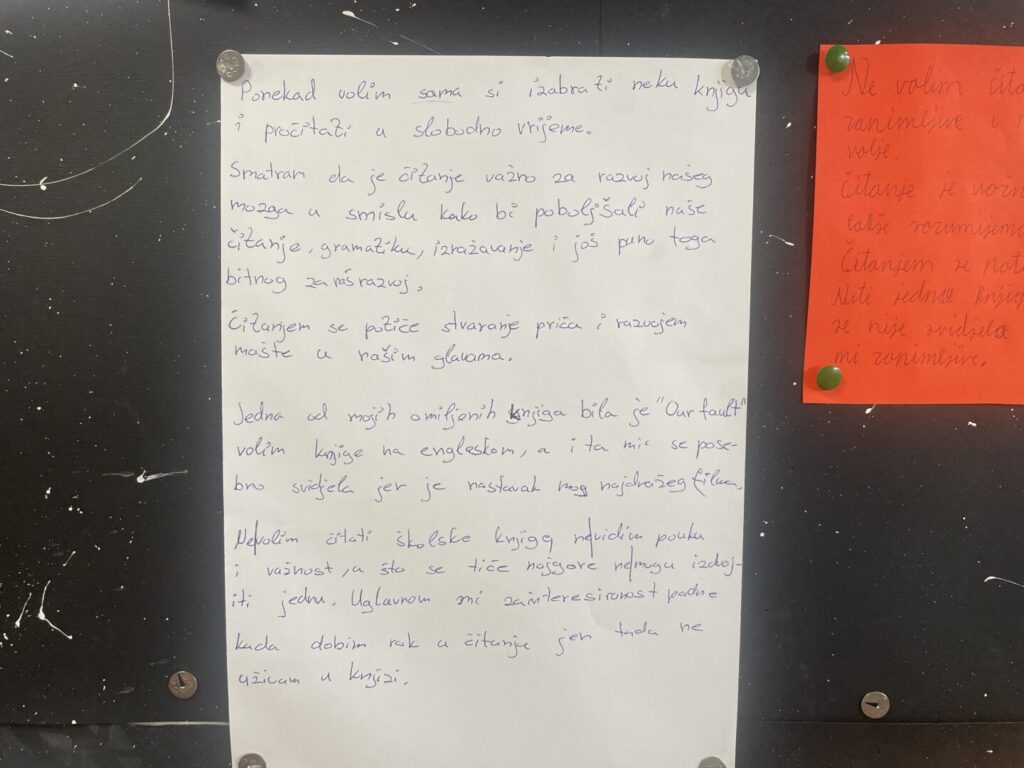 Ponekad volim sama si izabrati neku knjigu
i pročitati u slobodno vrijeme.
Smatram da je čitanje važno za razvoj našeg
mozga u smislu kako bi poboljšali naše
čitanje, gramatiku, izražavanje i još puno toga
bitnog za naš razvoj.
Čitanjem se potiče stvaranje priča i razvojem
mašte u našim glavama.
Jedna od mojih omiljenih knjiga bila je "Our fault"
volim knjige na engleskom, a i ta mi se pose-
bno svidjela jer je nastavak mog najdražeg filma.
Ne volim čitati školske knjige ne vidim pouku
i važnost, a što se tiče najgore ne mogu izdvoj-
iti jednu. Uglavnom mi zainteresiranost padne
kada dobim rok u čitanju jer tada ne
uživam u knjizi.
Ne volim
zanimljive i
volje.
Čitanje je
rozumijemo
Čitanjem se
Niti jedna
se nije svidjela
mi zanimljive.